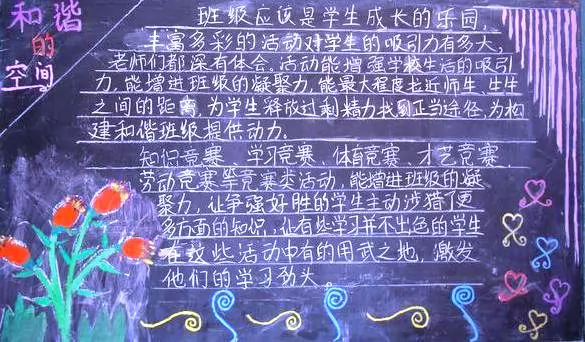 和谐
的
空间
班级应该是学生成长的乐园，
丰富多彩的活动对学生的吸引力有多大，
老师们都深有体会。活动能增强学校生活的吸引
力，能增进班级的凝聚力，能最大程度拉近师生、生生
之间的距离，为学生释放过剩精力找到正当途径，为构
建和谐班级提供动力。
知识竞赛、学习竞赛、体育竞赛、才艺竞赛、
劳动竞赛等竞赛类活动，能增进班级的凝
聚力，让争强好胜的学生主动涉猎了更
多方面的知识，让有些学习并不出色的学生
在这些活动中有的用武之地，激发
他们的学习劲头。